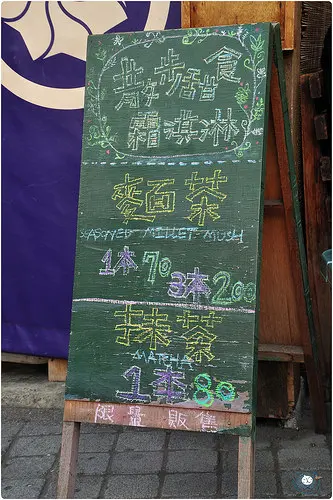 散步甜食
霜淇淋
麵茶
SEASONED MILLET MUSH
1本 70
3本 200
抹茶
MATCHA
1本 80
限量 販售